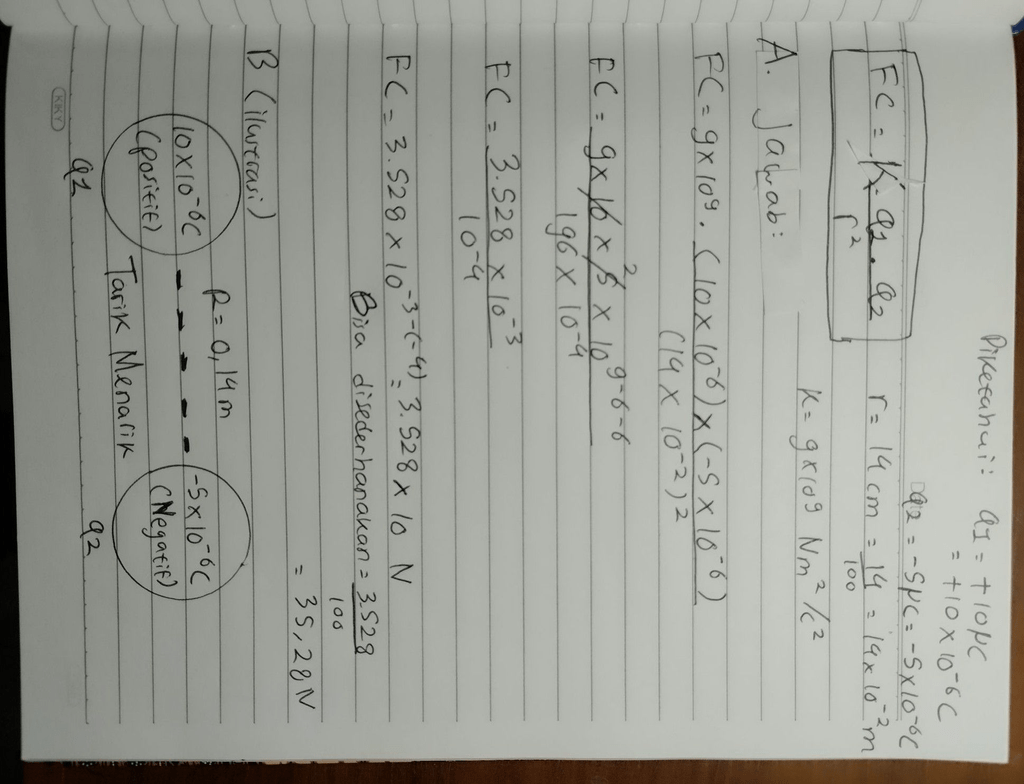 Diketahui: q1 = +10μC
= +10 × 10^-6 C
q2 = -5μC = -5×10^-6 C
FC = K q1 . q2 / r^2
r = 14 cm = 14/100 = 14×10^-2 m
K = 9×10^9 Nm^2/C^2
A. Jawab:
FC = 9×10^9 . (10×10^-6) × (-5×10^-6) / (14 × 10^-2)^2
FC = 9×10 × 5^2 × 10^9-6-6 / 196 × 10^-4
FC = 3.528 × 10^-3 / 10^-4
FC = 3.528 × 10^-3-(-4) = 3.528 × 10 N
Bisa disederhanakan = 3528/100
= 35,28 N
B (ilustrasi)
R = 0,14 m
10×10^-6 C (positif)
-5×10^-6 C (Negatif)
Tarik Menarik
q1
q2
KIKY